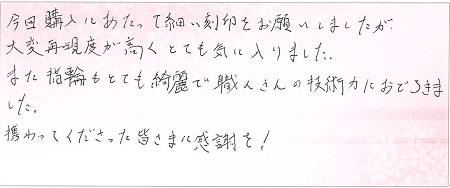 今回購入にあたって細い刻印をお願いしましたが
大変再現度が高くとても気に入りました。
また指輪もとても綺麗で職人さんの技術力におどろきま
した。
携わってくださった皆さまに感謝を!